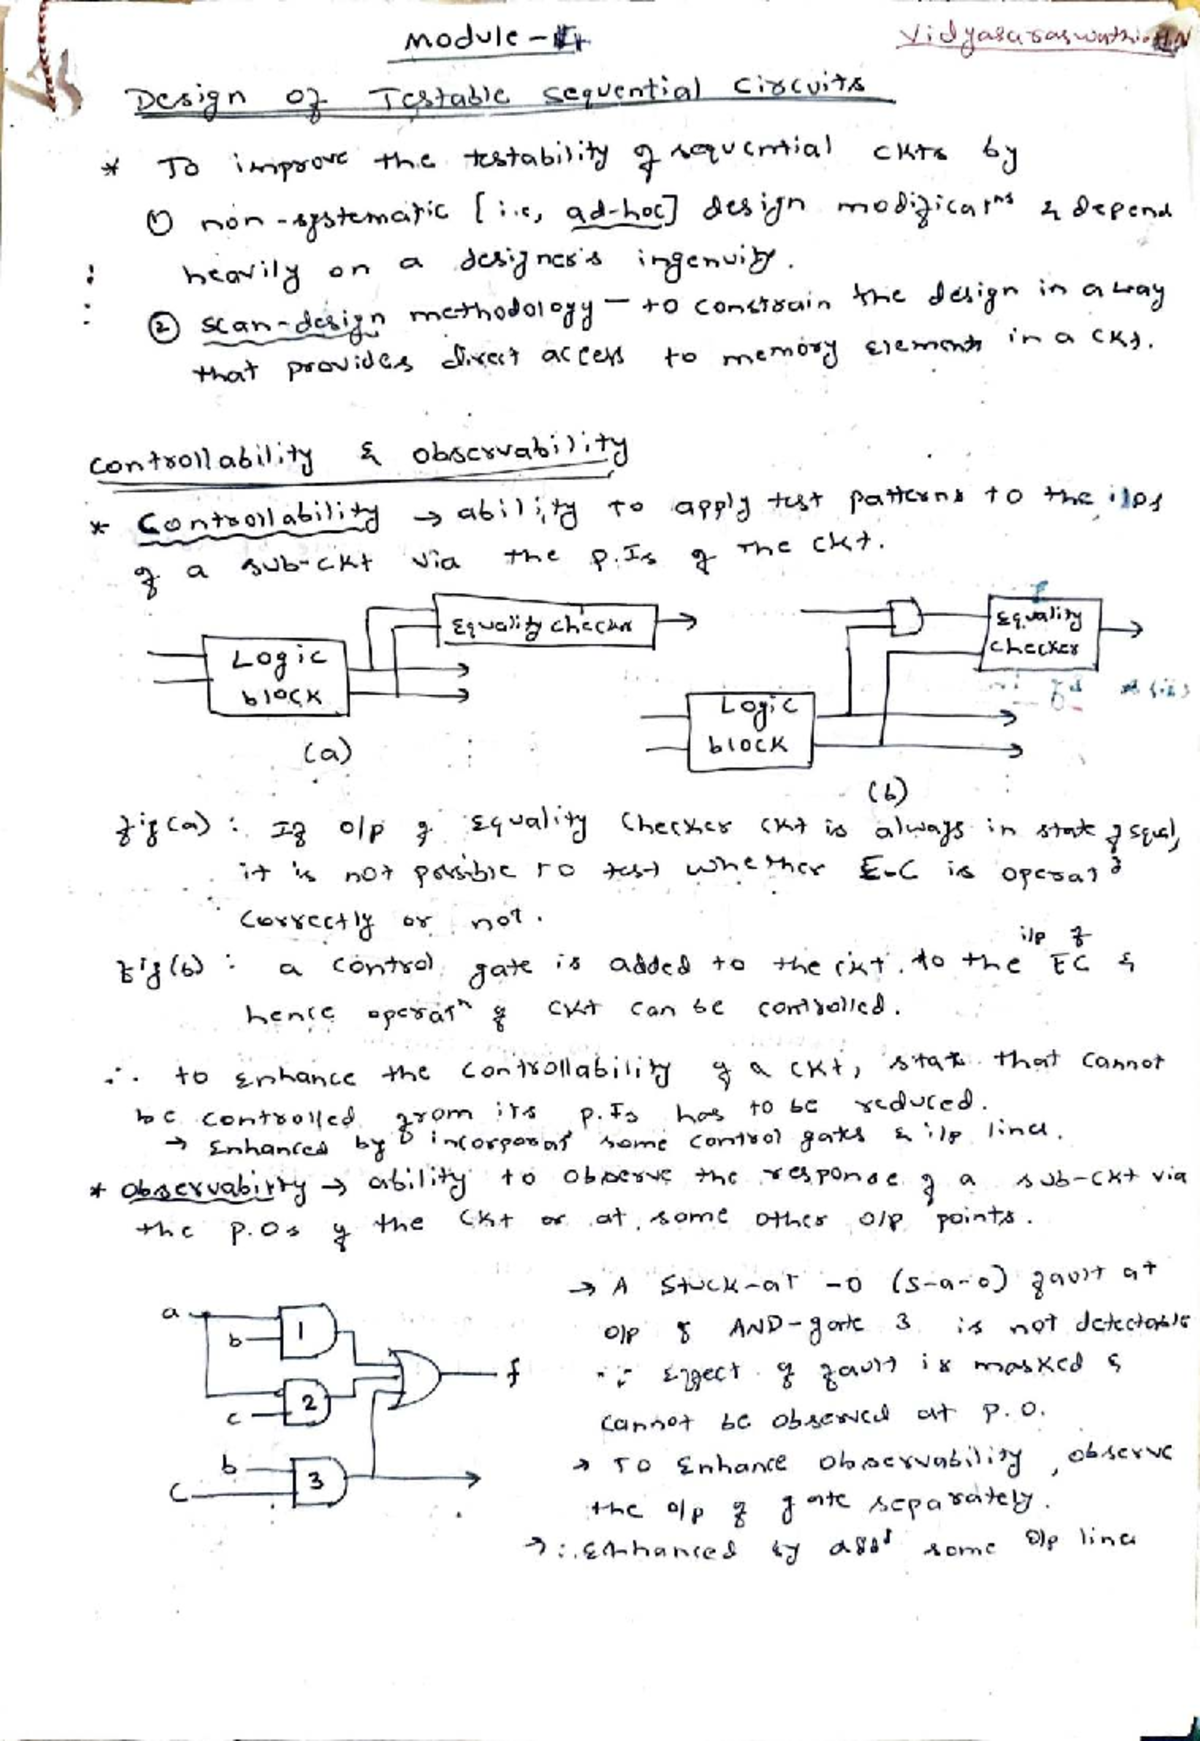 Module - 4
Vidyasaraswathi H.N
Design of Testable Sequential Circuits
* To improve the testability of sequential ckts by
① non-systematic [i.e, ad-hoc] design modificatns & depend
heavily on a designer's ingenuity.
② scan-design methodology — to constrain the design in a way
that provides direct access to memory elements in a ckt.
Controllability & Observability
* Controllability → ability to apply test patterns to the i/ps
of a sub-ckt via the P.Is of the ckt.
Logic block
Equality checker
(a)
Logic block
Equality checker
(b)
fig(a) : If o/p of Equality Checker ckt is always in state of equal,
it is not possible to test whether E.C is operatg
correctly or not.
fig(b) : a control gate is added to the ckt. to the i/p of EC &
hence operatn of ckt can be controlled.
∴ to enhance the controllability of a ckt, state that cannot
be controlled from its P.Is has to be reduced.
→ Enhanced by incorporatg some control gates & i/p lines.
* Observability → ability to observe the response of a sub-ckt via
the P.Os of the ckt or at some other o/p points.
a
b
1
c
2
b
c
3
f
→ A Stuck-at -0 (s-a-0) fault at
o/p of AND-gate 3 is not detectable
∵ Effect of fault is masked &
cannot be observed at P.O.
→ To Enhance observability, observe
the o/p of gate separately.
→ ∴ Enhanced by addg some o/p lines